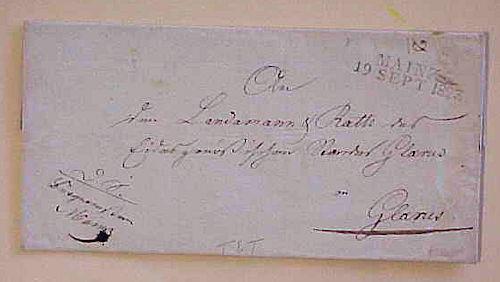 MAINZ
19 SEPT 18
An
den Landamann & Rath des
Eidsgenössischen Standes Glarus
in
Glarus
T & T